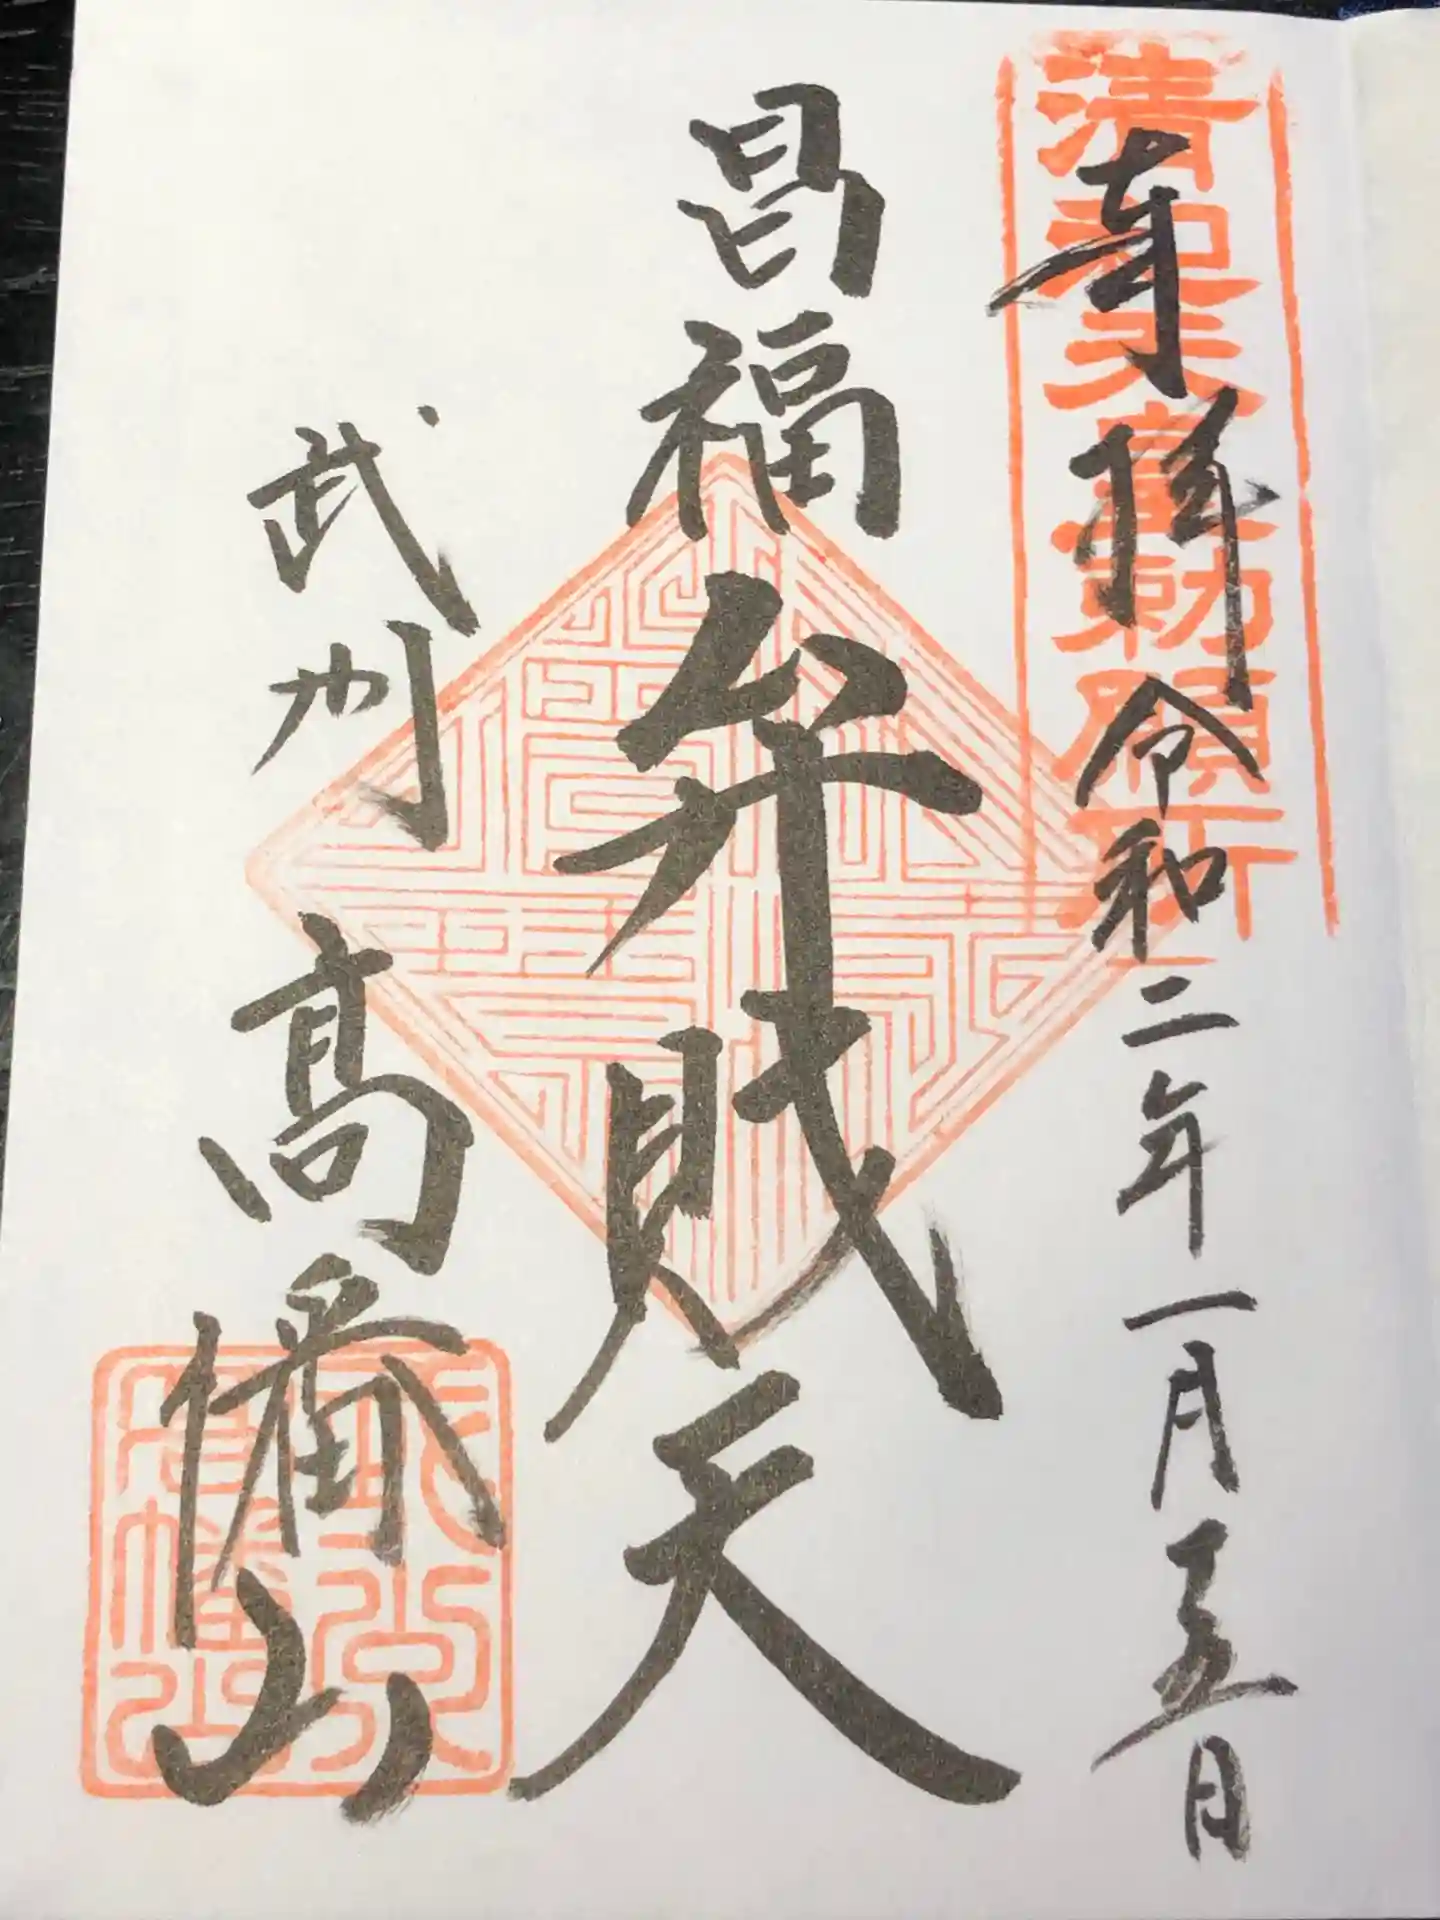 清和天皇勅願所
奉拝 令和二年一月五日
昌福弁財天
武州 髙幡山